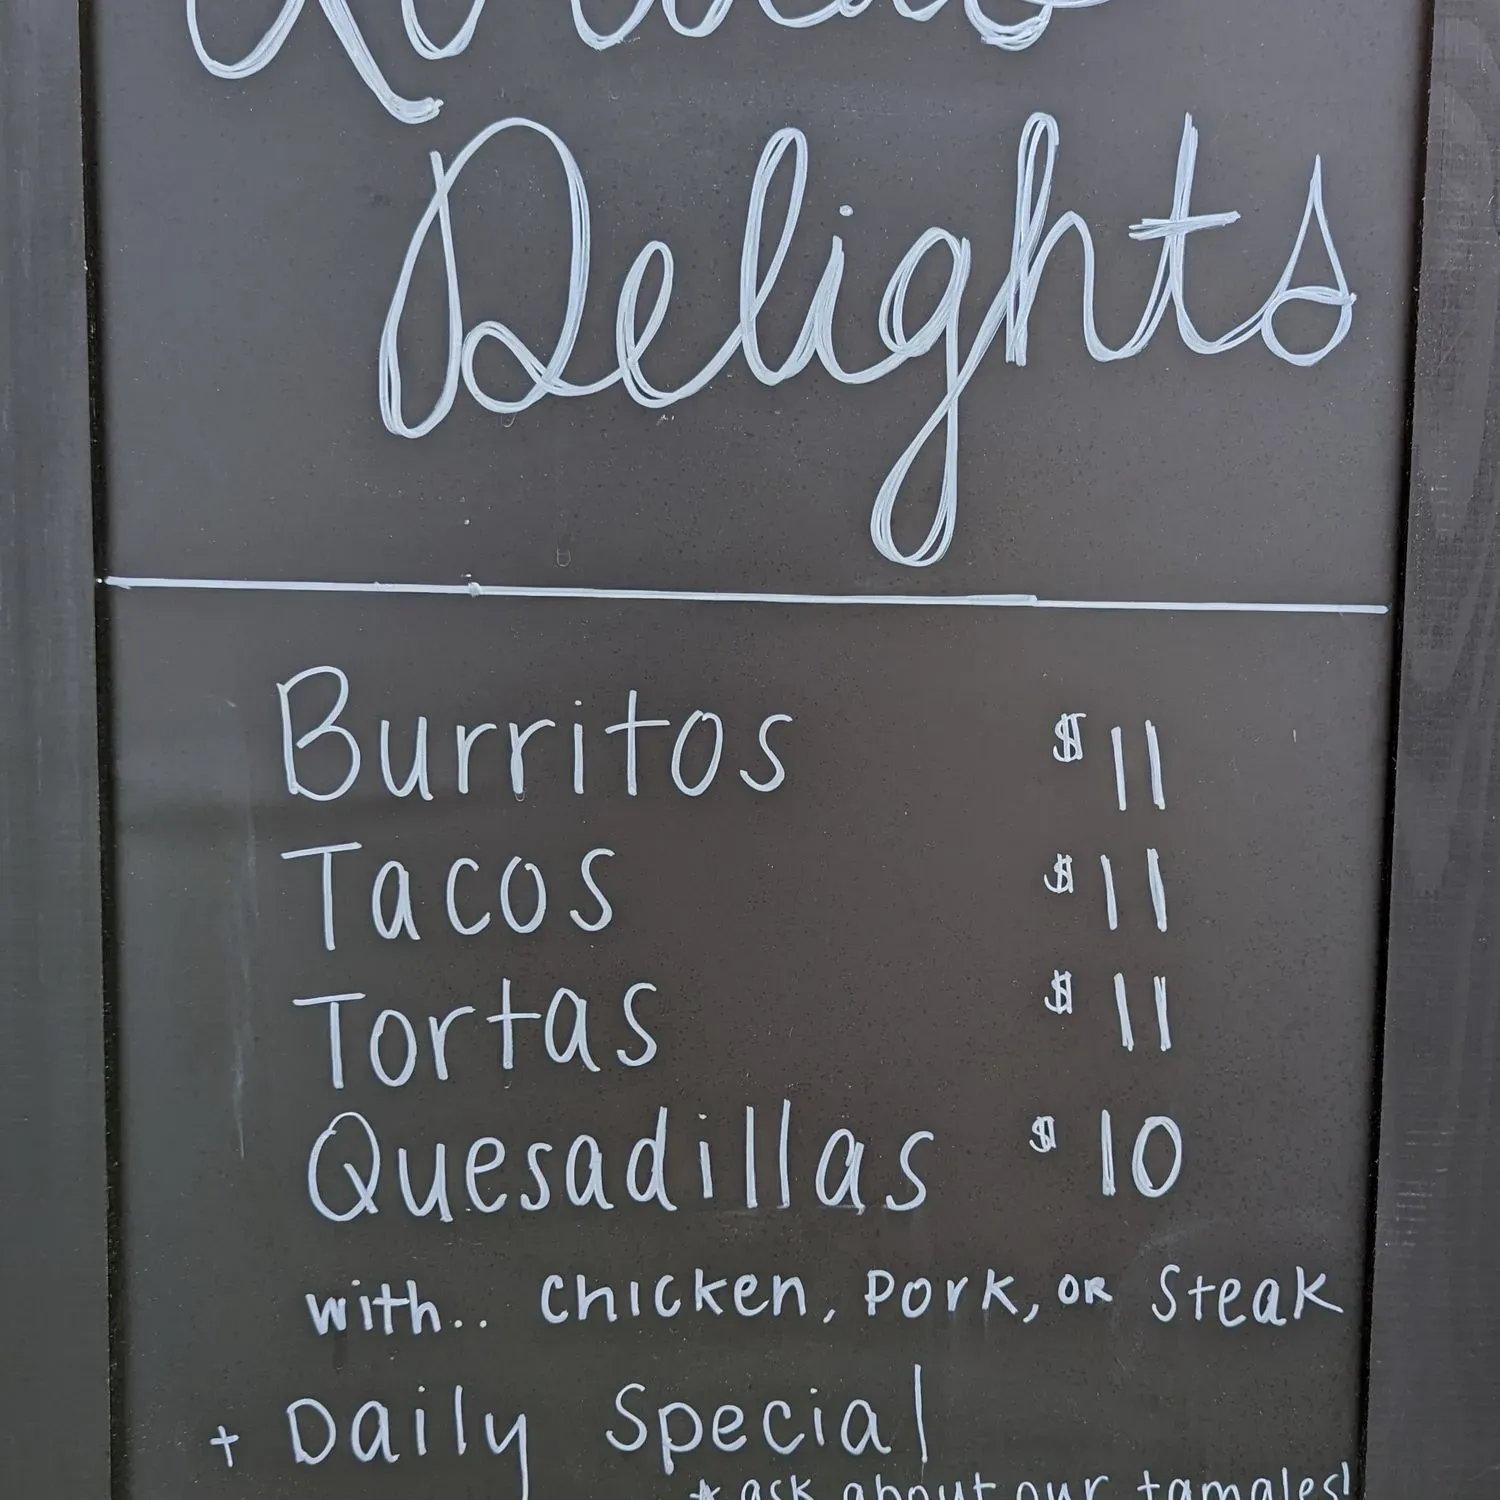 Delights
Burritos $11
Tacos $11
Tortas $11
Quesadillas $10
with.. chicken, Pork, or Steak
+ Daily Special
* ask about our tamales!